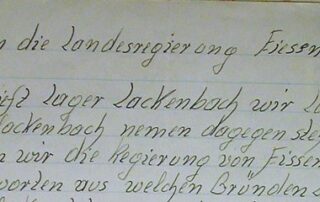 n die Landesregierung Eissen
ieft Lager Lackenbach wir La
Lackenbach nemen dagegen ste
n wir die Regierung von Eissen
worten aus welchen Gründen s